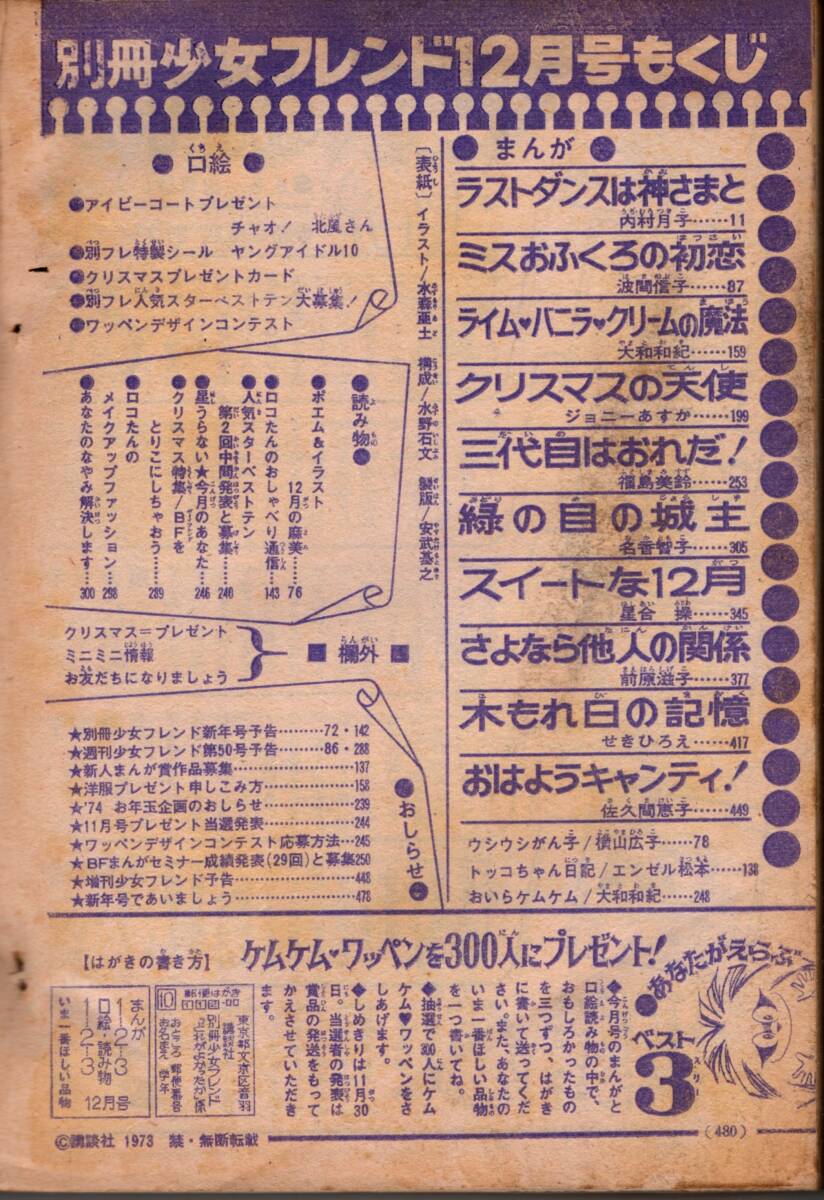 別冊少女フレンド12月号もくじ
●まんが●
ラストダンスは神さまと
内村月子……11
ミスおふくろの初恋
波間信子……87
ライム♥バニラ♥クリームの魔法
大和和紀……159
クリスマスの天使
ジョニーあすか……199
三代目はおれだ！
福島美鈴……253
緑の目の城主
名香智子……305
スイートな12月
星合 操……345
さよなら他人の関係
前原滋子……377
木もれ日の記憶
せきひろえ……417
おはようキャンティ！
佐久間恵子……449
ウシウシがん子/横山広子……78
トッコちゃん日記/エンゼル松本……138
おいらケムケム/大和和紀……248
〔表紙〕イラスト/水森亜土 構成/水野石文 製版/安武基之
●口絵●
●アイビーコートプレゼント
チャオ！ 北風さん
●別フレ特製シール ヤングアイドル10
●クリスマスプレゼントカード
●別フレ人気スターベストテン大募集！
●ワッペンデザインコンテスト
●読み物●
●ポエム＆イラスト
12月の麻美…76
●ロコたんのおしゃべり通信…143
●人気スターベストテン
第2回中間発表と募集…240
●星うらない★今月のあなた…246
●クリスマス特集/BFを
とりこにしちゃおう…289
●ロコたんの
メイクアップファッション…298
●あなたのなやみ解決します…300
■欄外■
クリスマス＝プレゼント
ミニミニ情報
お友だちになりましょう
●おしらせ●
★別冊少女フレンド新年号予告………72・142
★週刊少女フレンド第50号予告………86・288
★新人まんが賞作品募集………137
★洋服プレゼント申しこみ方………158
★'74 お年玉企画のおしらせ………239
★11月号プレゼント当選発表………244
★ワッペンデザインコンテスト応募方法…245
★BFまんがセミナー成績発表(29回)と募集250
★増刊少女フレンド予告………448
★新年号であいましょう………478
ケムケム♥ワッペンを300人にプレゼント！
●あなたがえらぶ
ベスト3
スリー
◆今月号のまんがと
口絵読み物の中で、
おもしろかったもの
を三つずつ、はがき
に書いて送ってくだ
さい。また、あなたの
いま一番ほしい品物
を一つ書いてね。
◆抽選で300人にケム
ケム♥ワッペンをさ
しあげます。
◆しめきりは11月30
日。当選者の発表は
賞品の発送をもって
かえさせていただき
ます。
【はがきの書き方】
10
郵便はがき
東京都文京区音羽
講談社
別冊少女フレンド
おところ 郵便番号
お名まえ 学年
まんが
1-2-3
口絵・読み物
1-2-3
いま一番ほしい品物
12月号
©講談社 1973 禁・無断転載
(480)